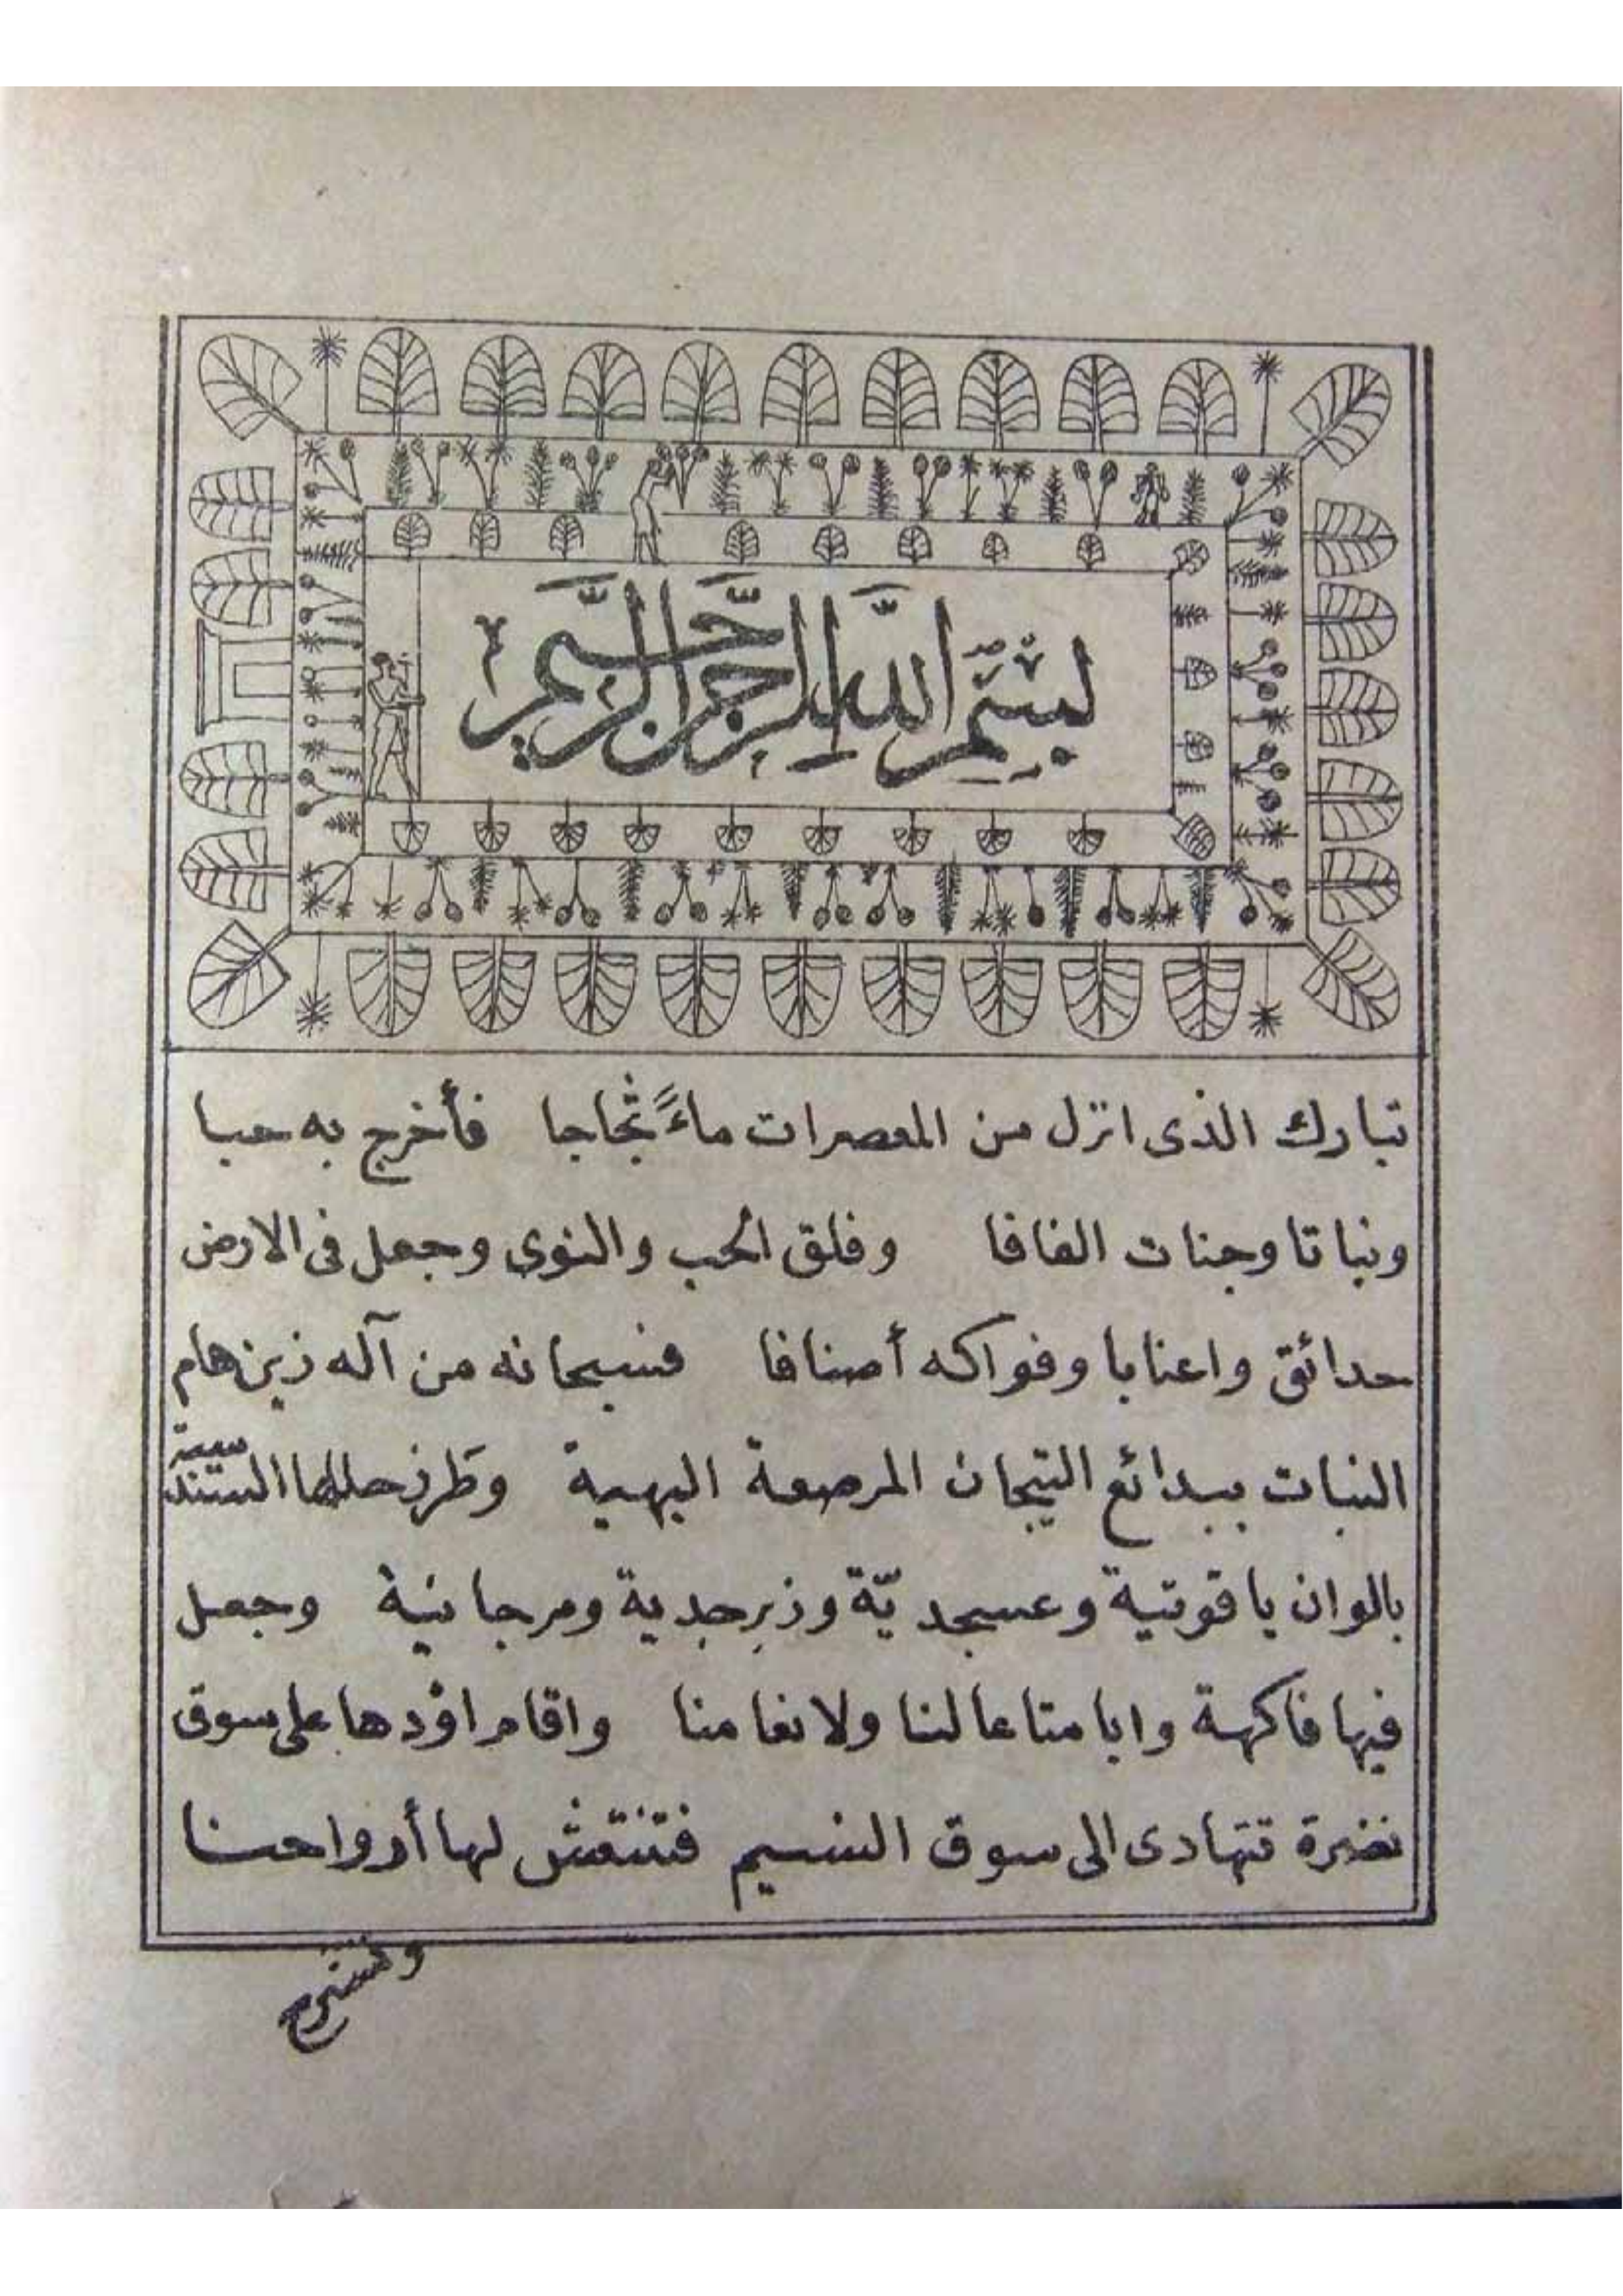 بسم الله الرحمن الرحيم
تبارك الذى انزل من المعصرات ماءً ثجاجا فأخرج به حبا
ونباتا وجنات الفافا وفلق الحب والنوى وجعل فى الارض
حدائق واعنابا وفواكه أصنافا فسبحانه من آله زين هام
النبات ببدائع التيجان المرصعة البهية وطرز حللها السندسية
بالوان ياقوتية وعسجديّة وزبرجدية ومرجانية وجعل
فيها فاكهة وابا متاعا لنا ولانعامنا واقام اؤدها على سوق
نضرة تتهادى الى سوق النسيم فتنتعش لها أرواحنا